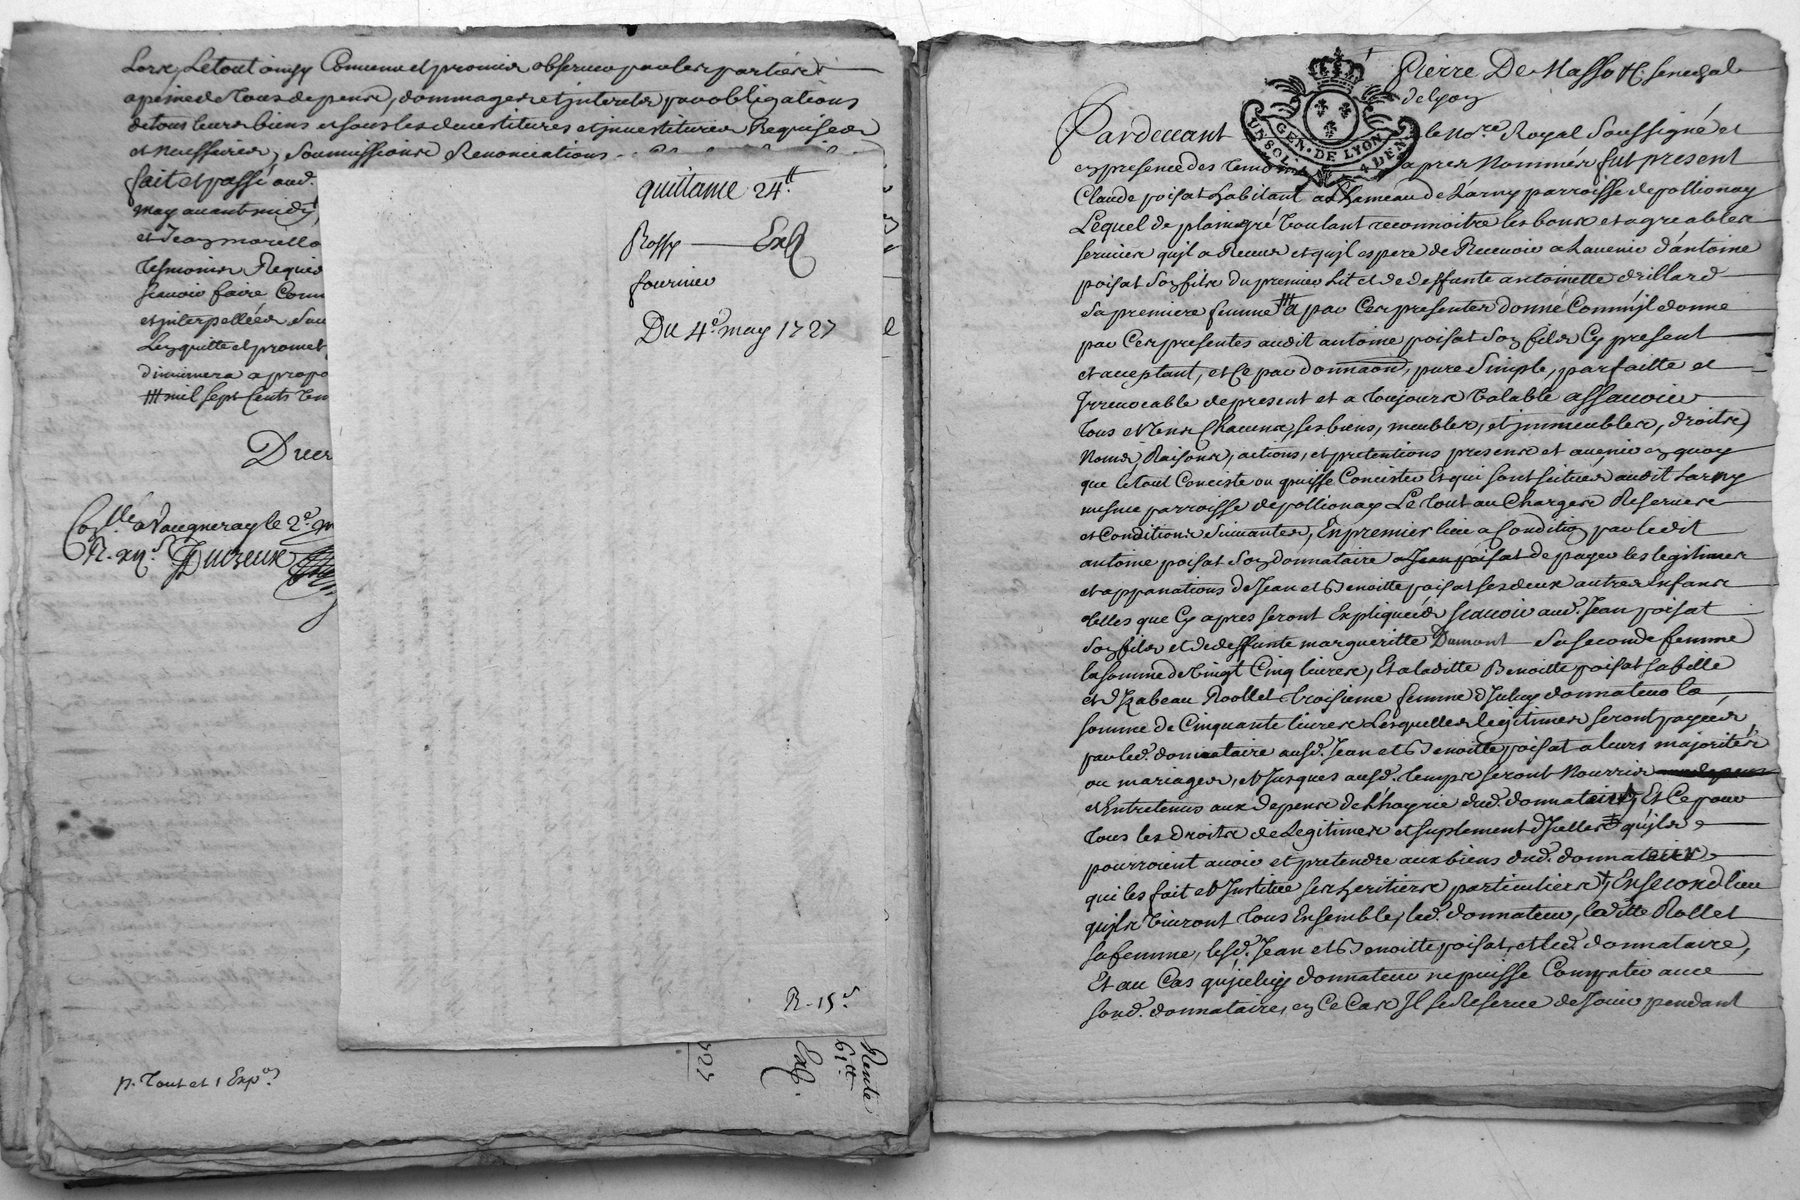 Lors, Le tout ainsy Convenu et promis observer par les parties
a peine de tous depens, dommages et interets par obligations
de tous leurs biens et sous les devestitures et investitures Requises
et necessaires, soumissions Renonciations
fait et passé aud.
may avant midy
et Jean morello
tesmoins Requis
scavoir faire
et interpellés
Lez quitte et promet
diminuera a propo
mil sept Cents
Coll.ée a Vaugneray le 2.e
R. Ducreux
p. tout et 1 Exp.on
quittance 24.tt
Rossy Exp
fournier
Du 4.e may 1727
R. 15.s
Rente
61.tt
Exp.
Pierre De Masso Sr. Senechal
de lyon
GEN. DE LYON
UN SOL 4 DEN
Pardevant le No.re Royal Soussigné et
en presence des temoins apres Nommés fut present
Claude poisat habitant au hameau de Larny parroisse de pollionay
Lequel de plain gré voulant reconnoitre les bons et agreables
services qu'il a Receu et qu'il espere de Recevoir a Lavenir d'antoine
poisat son fils du premier Lit et de deffunte antoinette drillard
sa premiere femme a par Ces presentes donné Comm'il donne
par Ces presentes audit antoine poisat son fils Cy present
et acceptant, et Ce par donnaon, pure Simple, parfaitte et
Irrevocable de present et a toujours valable assavoir
tous et uns Chacuns, ses biens, meubles, et immeubles, droits,
Noms, Raisons, actions, et pretentions presens et avenir en quoy
que le tout Conciste ou puisse Concister Et qui sont scitués audit Larny
mesme parroisse de pollionay Le tout au Charges Reserves
et Conditions suivantes, En premier lieu a Condition par ledit
antoine poisat son donnataire a Jean poisat de payer les legitimes
et appanations de Jean et Benoitte poisat ses deux autres Enfans
telles que Cy apres seront Expliquées scavoir aud. Jean poisat
son fils et de deffunte margueritte Dumont sa seconde femme
la somme de vingt Cinq livres, Et a laditte Benoitte poisat sa fille
et d'Izabeau Rollet troisieme femme d'Iceluy donnateur la
somme de Cinquante livres Lesquelles legitimes seront payées
par led. donnataire ausd. Jean et Benoitte poisat a leurs majorités
ou mariages, et Jusques ausd. temps seront Nourris
et Entretenus aux depens de L'hoyrie dud. donnateur, Et Ce pour
tous les droits de Legitimes et suplement d'Icelles qu'ils
pourroient avoir et pretendre aux biens dud. donnateur
qui les fait et Institue ses heritiers particuliers, En second lieu
qu'ils vivront tous Ensemble, led. donnateur, laditte Rollet
sa femme, lesd. Jean et Benoitte poisat, et led. donnataire,
Et au Cas qu'Iceluy donnateur ne puisse Compatir avec
sond. donnataire, en Ce Cas Il se Reserve de Jouir pendant